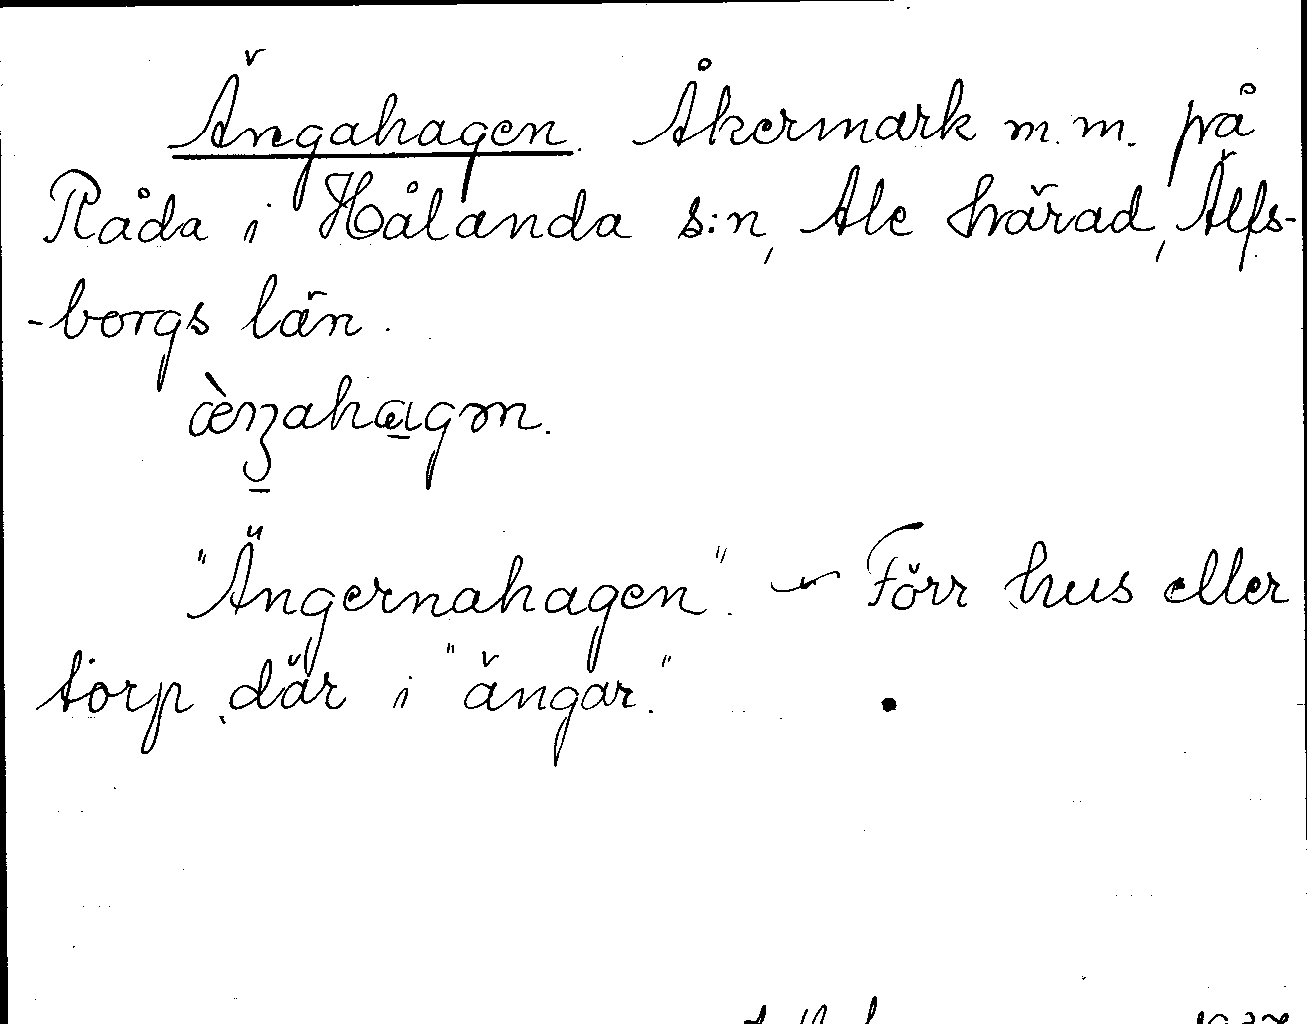 Ängahagen. Åkermark m.m. på
Råda i Hålanda s:n, Ale härad, Älfs-
-borgs län.
æ̀ŋahagən.
"Ängernahagen". – Förr hus eller
torp där i "ängar."